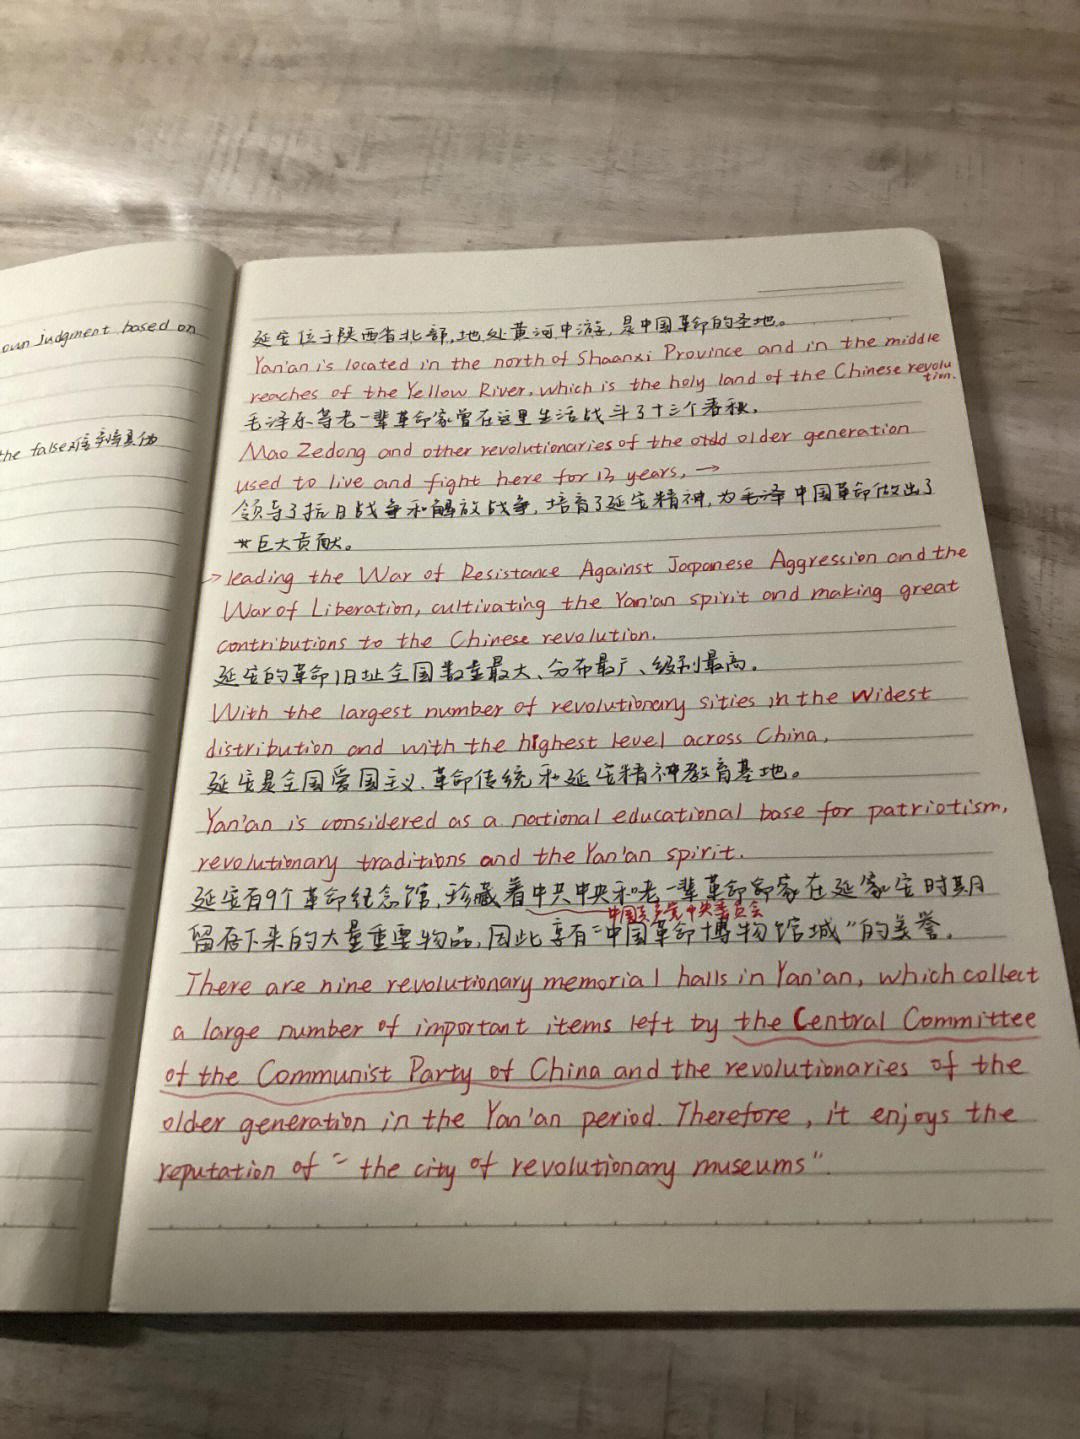 own judgment based on
the false
延安位于陕西省北部,地处黄河中游,是中国革命的圣地。
Yan'an is located in the north of Shaanxi Province and in the middle
reaches of the Yellow River, which is the holy land of the Chinese revolution.
毛泽东等老一辈革命家曾在这里生活战斗了十三个春秋,
Mao Zedong and other revolutionaries of the older generation
used to live and fight here for 13 years, →
领导了抗日战争和解放战争,培育了延安精神,为中国革命做出了
巨大贡献。
→ leading the War of Resistance Against Japanese Aggression and the
War of Liberation, cultivating the Yan'an spirit and making great
contributions to the Chinese revolution.
延安的革命旧址全国数量最大、分布最广、级别最高。
With the largest number of revolutionary sities in the widest
distribution and with the highest level across China,
延安是全国爱国主义、革命传统和延安精神教育基地。
Yan'an is considered as a national educational base for patriotism,
revolutionary traditions and the Yan'an spirit.
延安有9个革命纪念馆,珍藏着中共中央和老一辈革命家在延安时期
中国共产党中央委员会
留存下来的大量重要物品,因此享有"中国革命博物馆城"的美誉。
There are nine revolutionary memorial halls in Yan'an, which collect
a large number of important items left by the Central Committee
of the Communist Party of China and the revolutionaries of the
older generation in the Yan'an period. Therefore, it enjoys the
reputation of "the city of revolutionary museums".